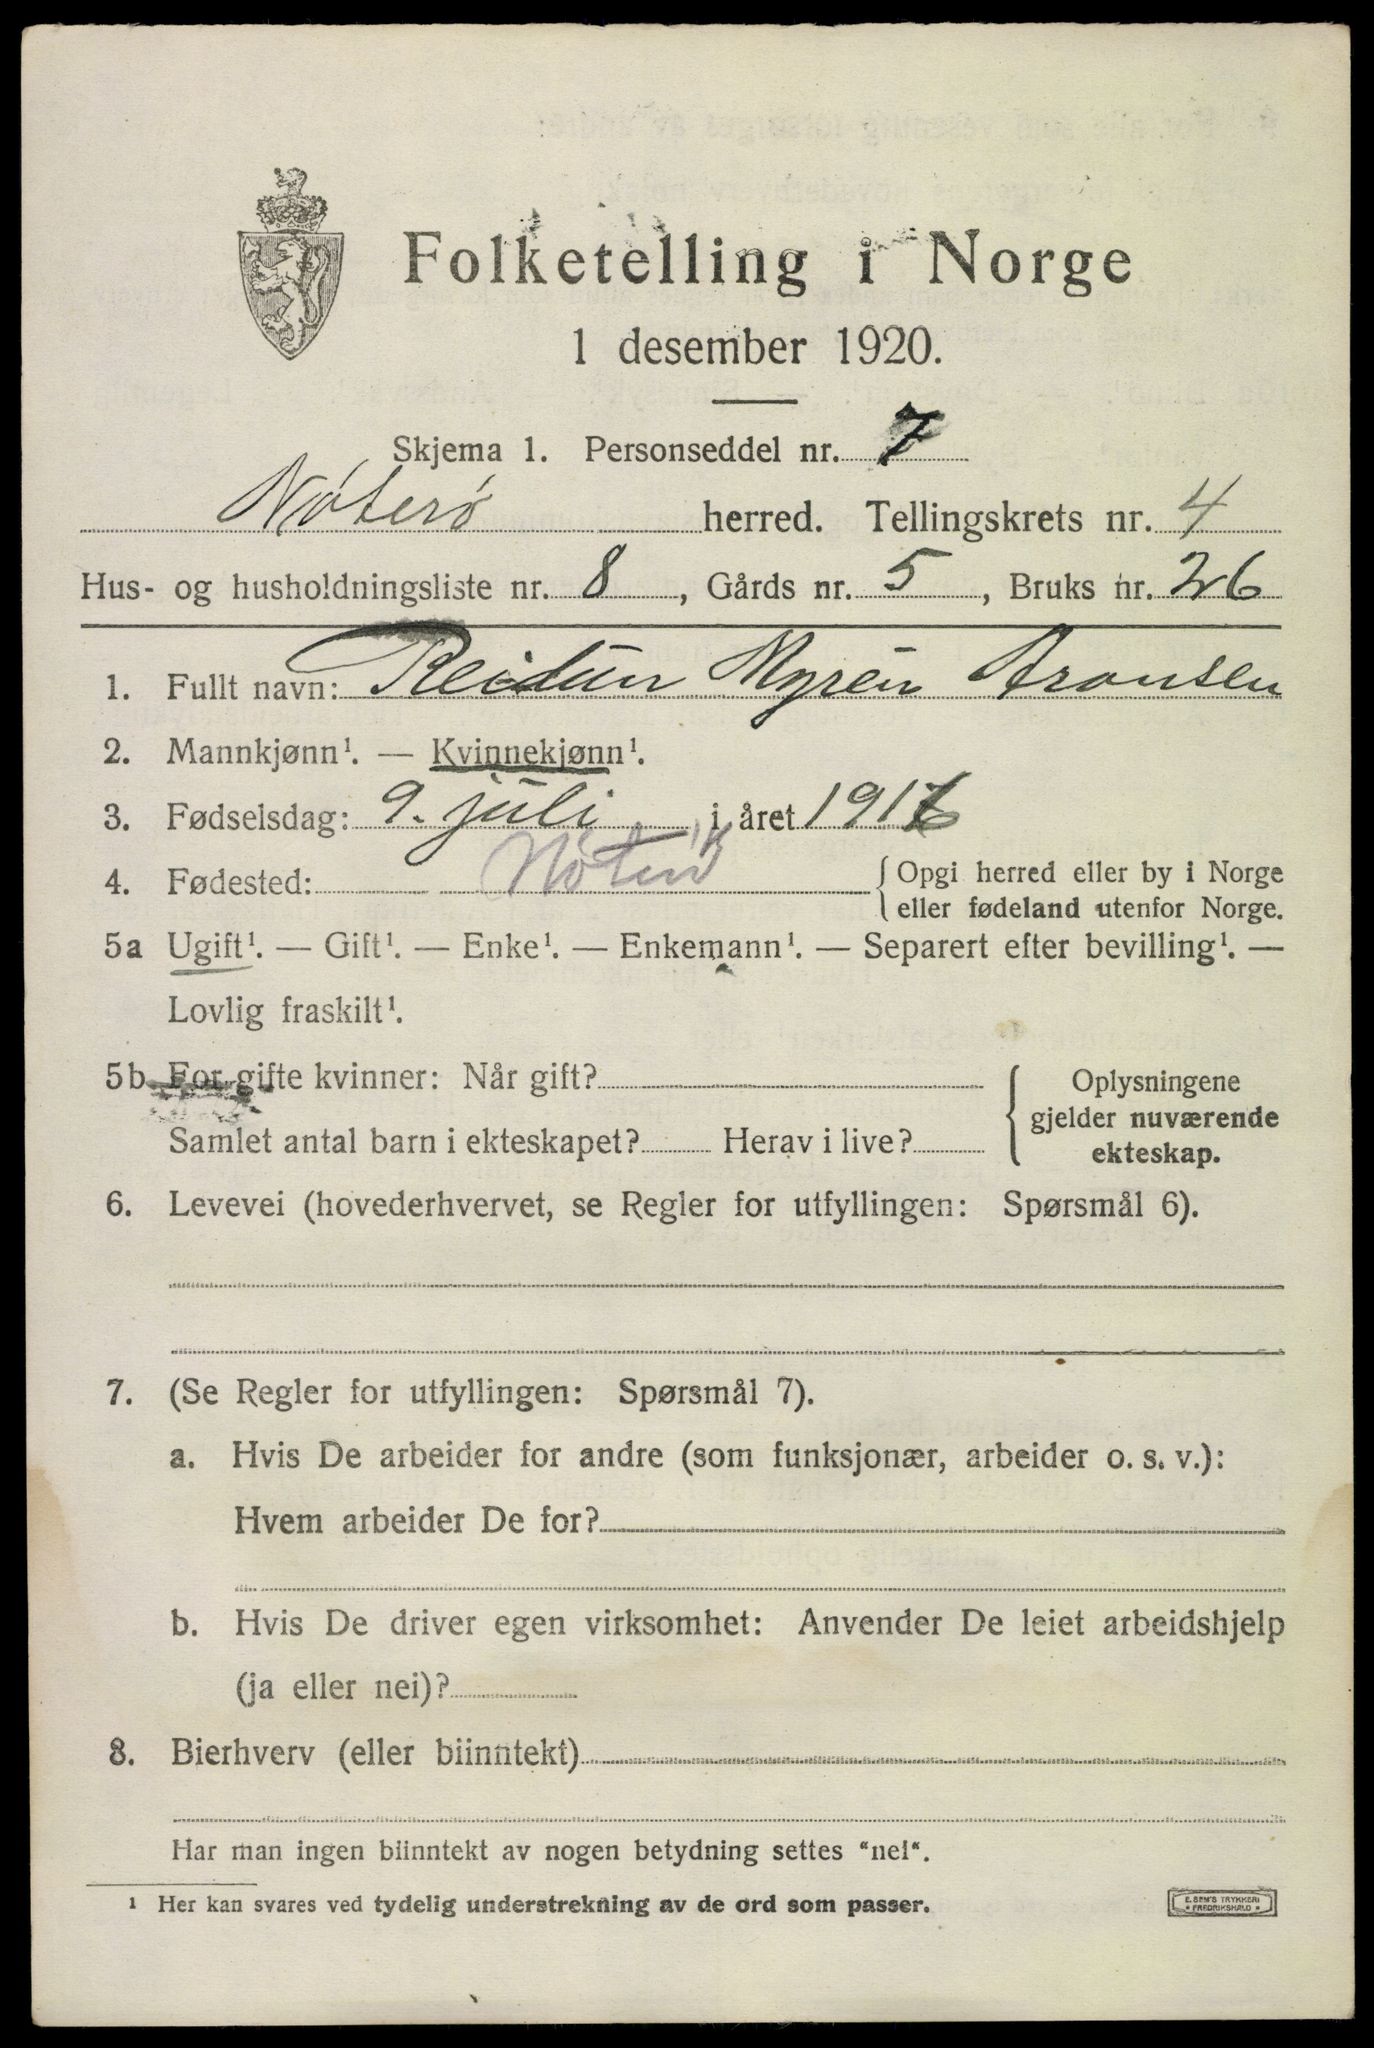 Folketelling i Norge
1 desember 1920.
Skjema 1. Personseddel nr. 7
Nøterø herred. Tellingskrets nr. 4
Hus- og husholdningsliste nr. 8, Gårds nr. 5, Bruks nr. 26
1. Fullt navn: Reidun Myren Aronsen
2. Mannkjønn¹. — Kvinnekjønn¹.
3. Fødselsdag: 9. juli i året 1916
4. Fødested: Nøterø {Opgi herred eller by i Norge
eller fødeland utenfor Norge.
5a Ugift¹. — Gift¹. — Enke¹. — Enkemann¹. — Separert efter bevilling¹. —
Lovlig fraskilt¹.
5b For gifte kvinner: Når gift? { Oplysningene
gjelder nuværende
Samlet antal barn i ekteskapet? Herav i live? ekteskap.
6. Levevei (hovederhvervet, se Regler for utfyllingen: Spørsmål 6).
7. (Se Regler for utfyllingen: Spørsmål 7).
a. Hvis De arbeider for andre (som funksjonær, arbeider o. s. v.):
Hvem arbeider De for?
b. Hvis De driver egen virksomhet: Anvender De leiet arbeidshjelp
(ja eller nei)?
8. Bierhverv (eller biinntekt)
Har man ingen biinntekt av nogen betydning settes "nei".
¹ Her kan svares ved tydelig understrekning av de ord som passer.
E. SEM'S TRYKKERI
* FREDRIKSHALD *